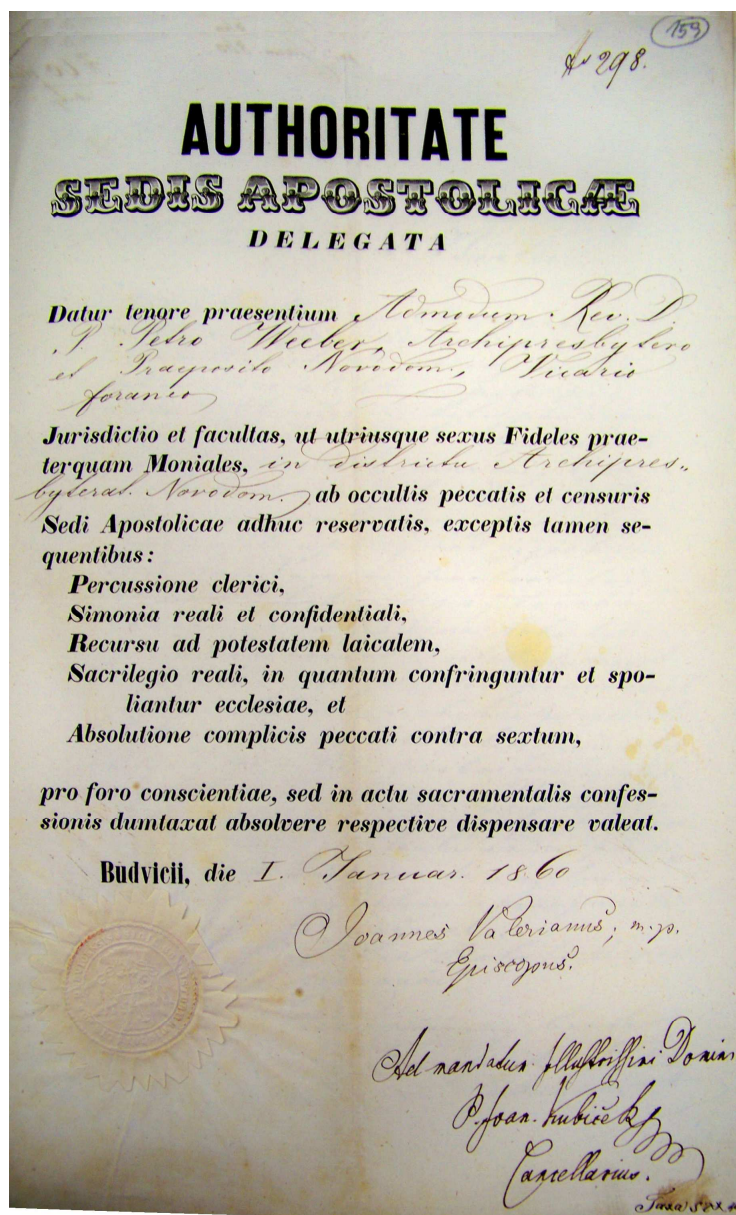 159
No 298.
AUTHORITATE
SEDIS APOSTOLICÆ
DELEGATA
Datur tenore praesentium Admodum Rev. D.
P. Petro Weeber, Archipresbytero
et Praeposito Novodom., Vicario
foraneo
Jurisdictio et facultas, ut utriusque sexus Fideles prae-
terquam Moniales, in districtu Archipres-
byterat. Novodom. ab occultis peccatis et censuris
Sedi Apostolicae adhuc reservatis, exceptis tamen se-
quentibus:
Percussione clerici,
Simonia reali et confidentiali,
Recursu ad potestatem laicalem,
Sacrilegio reali, in quantum confringuntur et spo-
liantur ecclesiae, et
Absolutione complicis peccati contra sextum,
pro foro conscientiae, sed in actu sacramentalis confes-
sionis dumtaxat absolvere respective dispensare valeat.
Budvicii, die I. Januar. 1860
Joannes Valerianus, m. p.
Episcopus.
Ad mandatum Illustrissimi Domini
P. Joan. Kubiček
Cancellarius.
Taxa